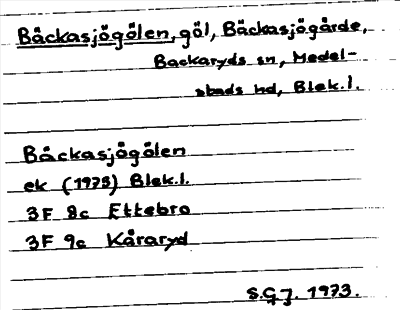 Bäckasjögölen, göl, Bäckasjögårde,
Backaryds sn, Medel-
stads hd, Blek.l.
Bäckasjögölen
ek (1973) Blek.l.
3F 8c Ettebro
3F 9c Kåraryd
S.G.J. 1973.